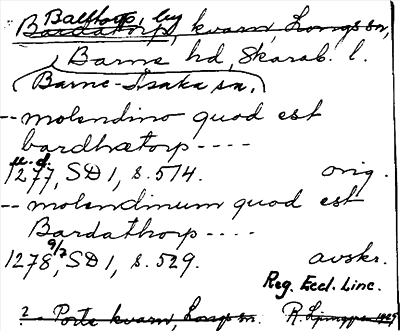 Balltorp, by
Bardatorp, kvarn, Longs sn,
Barne hd, Skarab. l.
Barne-Åsaka sn.
-- molendino quod est
bardhætorp ----
u.d.
1277, SD 1, s. 514. orig.
-- molendinum quod est
Bardathorp ----
9/7
1278, SD 1, s. 529. avskr.
Reg. Eccl. Linc.
? - Porte kvarn, Longs sn. R. 1929